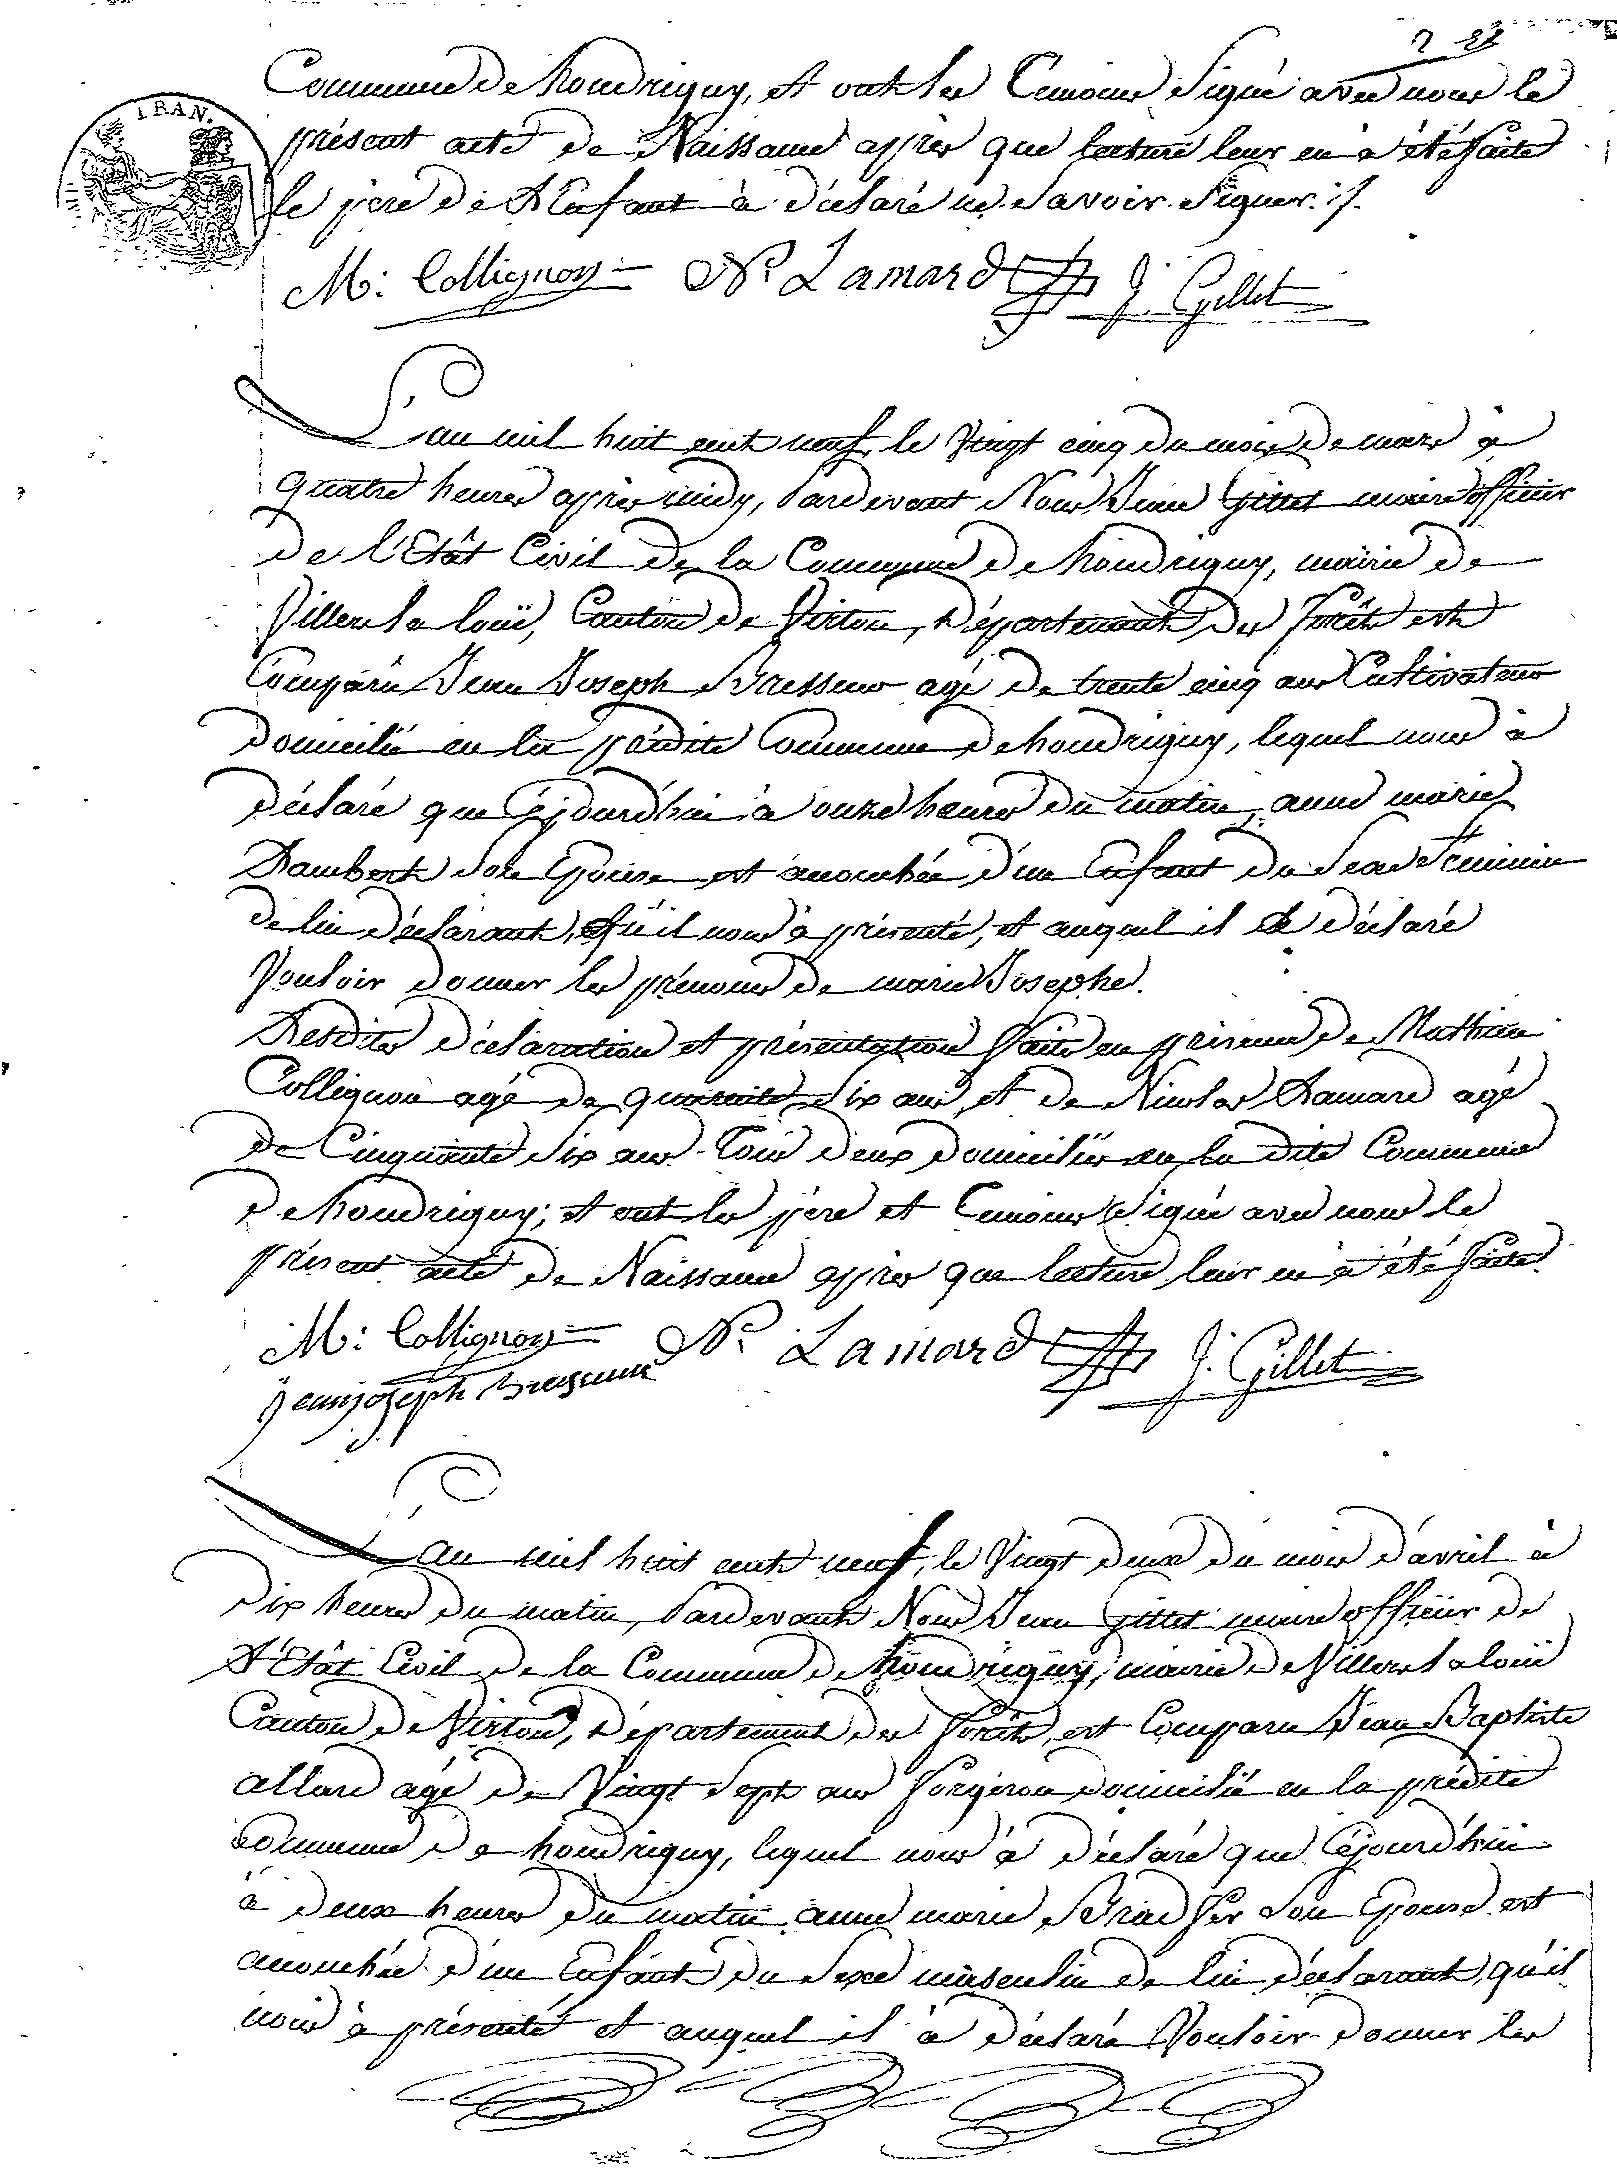 Commune de houdrigny, et ont les témoins signé avec nous le
présent acte de Naissance après que lecture leur en à été faite
le père de l'Enfant à déclaré ne savoir signer ./.
M: Collignon N.s Lamard J. Gillet
FRAN.
L'an mil huit cent neuf, le vingt cinq du mois de mars à
quatre heures après midy, Pardevant Nous Jean Gillet maire officier
de l'Etât Civil de la Commune de houdrigny, mairie de
Villers la loüe, Canton de Virton, Département des forêts est
Comparu Jean Joseph Bresseur agé de trente cinq ans Cultivateur
domicilié en la prédite Commune de houdrigny, lequel nous à
déclaré que Cejourd'hui à onze heures du matin, anne marie
Lambert son Epouse est accouchée d'un Enfant du sexe féminin
de lui déclarant, qu'il nous à présenté, et auquel il à déclaré
Vouloir donner les prénoms de marie Josephe.
Lesdites déclaration et présentation faites en présence de Mathieu
Collignon agé de quarante six ans, et de Nicolas Lamard agé
de Cinquante six ans tous deux domiciliés en la dite Commune
de houdrigny; et ont les père et témoins signé avec nous le
présent acte de Naissance après que lecture leur en à été faite.
M: Collignon N.s Lamard J. Gillet
Jean joseph Bresseur
L'an mil huit cent neuf, le Vingt deux du mois d'avril à
dix heures du matin, Pardevant Nous Jean Gillet maire officier de
L'Etât Civil de la Commune de houdrigny, mairie de Villers la loüe
Canton de Virton, Département des forêts, est Comparu Jean Baptiste
allard agé de Vingt sept ans forgeron domicilié en la prédite
commune de houdrigny, lequel nous à déclaré que Cejourd'hui
à deux heures du matin, anne marie son Epouse est
accouchée d'un Enfant du sexe masculin de lui déclarant, qu'il
nous à présenté et auquel il à déclaré Vouloir donner les